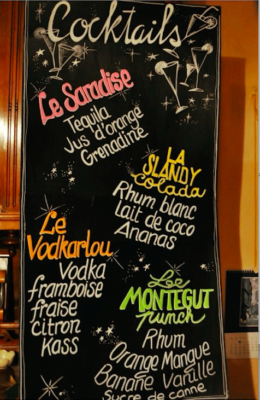 Cocktails
Le Saradise
Tequila
Jus d'orange
Grenadine
LA
SLANDY
colada
Rhum blanc
lait de coco
Ananas
Le
Vodkarlou
Vodka
framboise
fraise
citron
Kass
Le
MONTEGUT
punch
Rhum
Orange Mangue
Banane Vanille
Sucre de canne